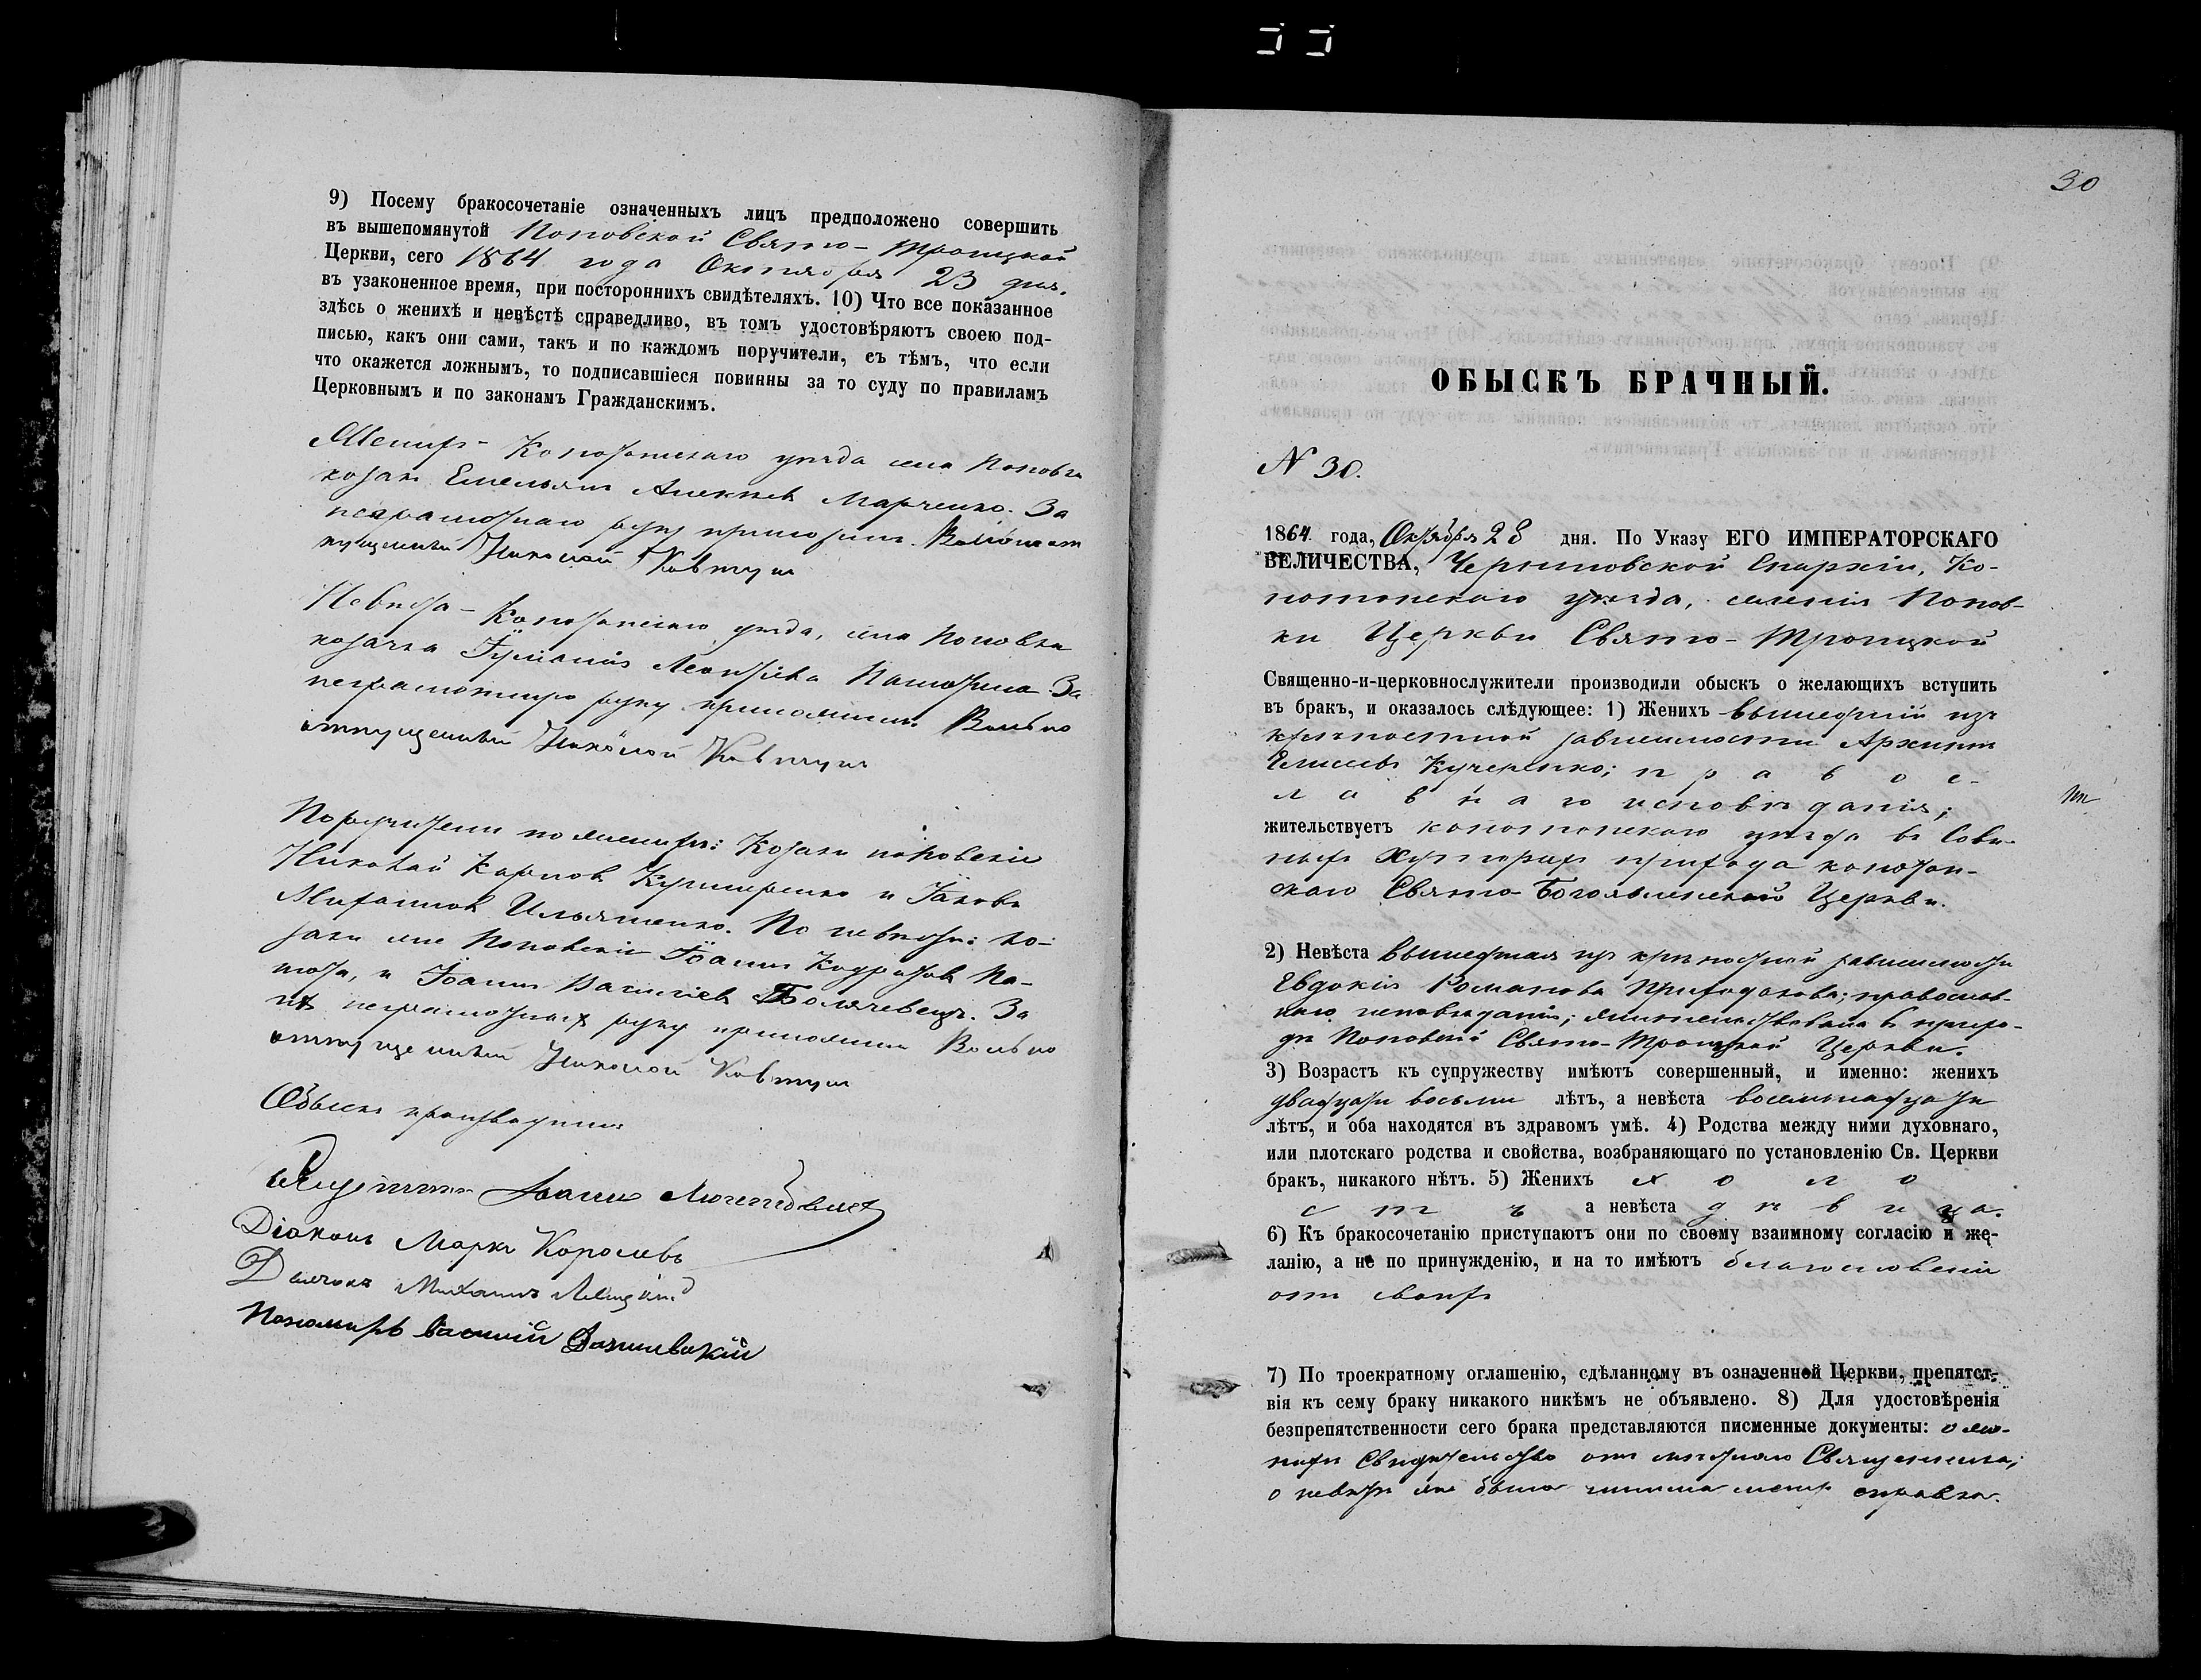 9) Посему бракосочетаніе означенныхъ лицъ предположено совершить
въ вышепомянутой Поповской Свято-Троицкой
Церкви, сего 1864 года Октября 23 дня.
въ узаконенное время, при постороннихъ свидѣтеляхъ. 10) Что все показанное
здѣсь о женихѣ и невѣстѣ справедливо, въ томъ удостовѣряютъ своею под-
писью, какъ они сами, такъ и по каждомъ поручители, съ тѣмъ, что если
что окажется ложнымъ, то подписавшіеся повинны за то суду по правиламъ
Церковнымъ и по законамъ Гражданскимъ.
Женихъ - Конотопскаго уѣзда села Поповки
козакъ Емельянъ Алексѣевъ Марченко. За
неграмотнаго руку приложилъ Вольноот
пущенный Николай Ковтунъ
Невѣста - Конотопскаго уѣзда, села Поповки
козачка Іуліанія Леонтіева За
неграмотную руку приложилъ Вольно
отпущенный Николай Ковтунъ
Поручители по женихѣ: Козаки поповскіе
Николай Карповъ Кушнеренко и Іаковъ
Михайловъ Ильяшенко. По невѣстѣ: ко-
заки же Поповскіе Іоаннъ Кодратовъ
и Іоаннъ Васильевъ За
нихъ неграмотныхъ руку приложилъ Вольно
отпущенный Николай Ковтунъ
Обыскъ производили:
Священникъ Іоаннъ
Діаконъ Маркъ Королевъ
Дьячокъ Михаилъ Левицкій
Пономарь Василій
30
ОБЫСКЪ БРАЧНЫЙ.
N 30.
1864 года, Октября 28 дня. По Указу ЕГО ИМПЕРАТОРСКАГО
ВЕЛИЧЕСТВА, Черниговской Епархіи, Ко-
нотопскаго уѣзда, селенія Попов-
ки Церкви Свято-Троицкой
Священно-и-церковнослужители производили обыскъ о желающихъ вступить
въ бракъ, и оказалось слѣдующее: 1) Женихъ вышедшій изъ
крѣпостной зависимости Архипъ
Елисеевъ Кучеренко; правос-
лавнаго исповѣданія;
жительствуетъ конотопскаго уѣзда въ
Хуторахъ прихода конотоп-
скаго Свято-Богоявленской Церкви.
2) Невѣста вышедшая изъ крѣпостной зависимости
Евдокія Романова Приходькова; православ-
наго исповѣданія; жительствовала въ прихо-
дѣ Поповской Свято-Троицкой Церкви.
3) Возрастъ къ супружеству имѣютъ совершенный, и именно: женихъ
двадцати восьми лѣтъ, а невѣста восемьнадцати
лѣтъ, и оба находятся въ здравомъ умѣ. 4) Родства между ними духовнаго,
или плотскаго родства и свойства, возбраняющаго по установленію Св. Церкви
бракъ, никакого нѣтъ. 5) Женихъ холо
стъ а невѣста дѣвица.
6) Къ бракосочетанію приступаютъ они по своему взаимному согласію и же-
ланію, а не по принужденію, и на то имѣютъ благословеніе
отъ своихъ
7) По троекратному оглашенію, сдѣланному въ означенной Церкви, препятст-
вія къ сему браку никакого никѣмъ не объявлено. 8) Для удостовѣренія
безпрепятственности сего брака представляются писменные документы: о же-
нихѣ Свидѣтельство отъ мѣстнаго Священника;
о невѣстѣ же была справка.